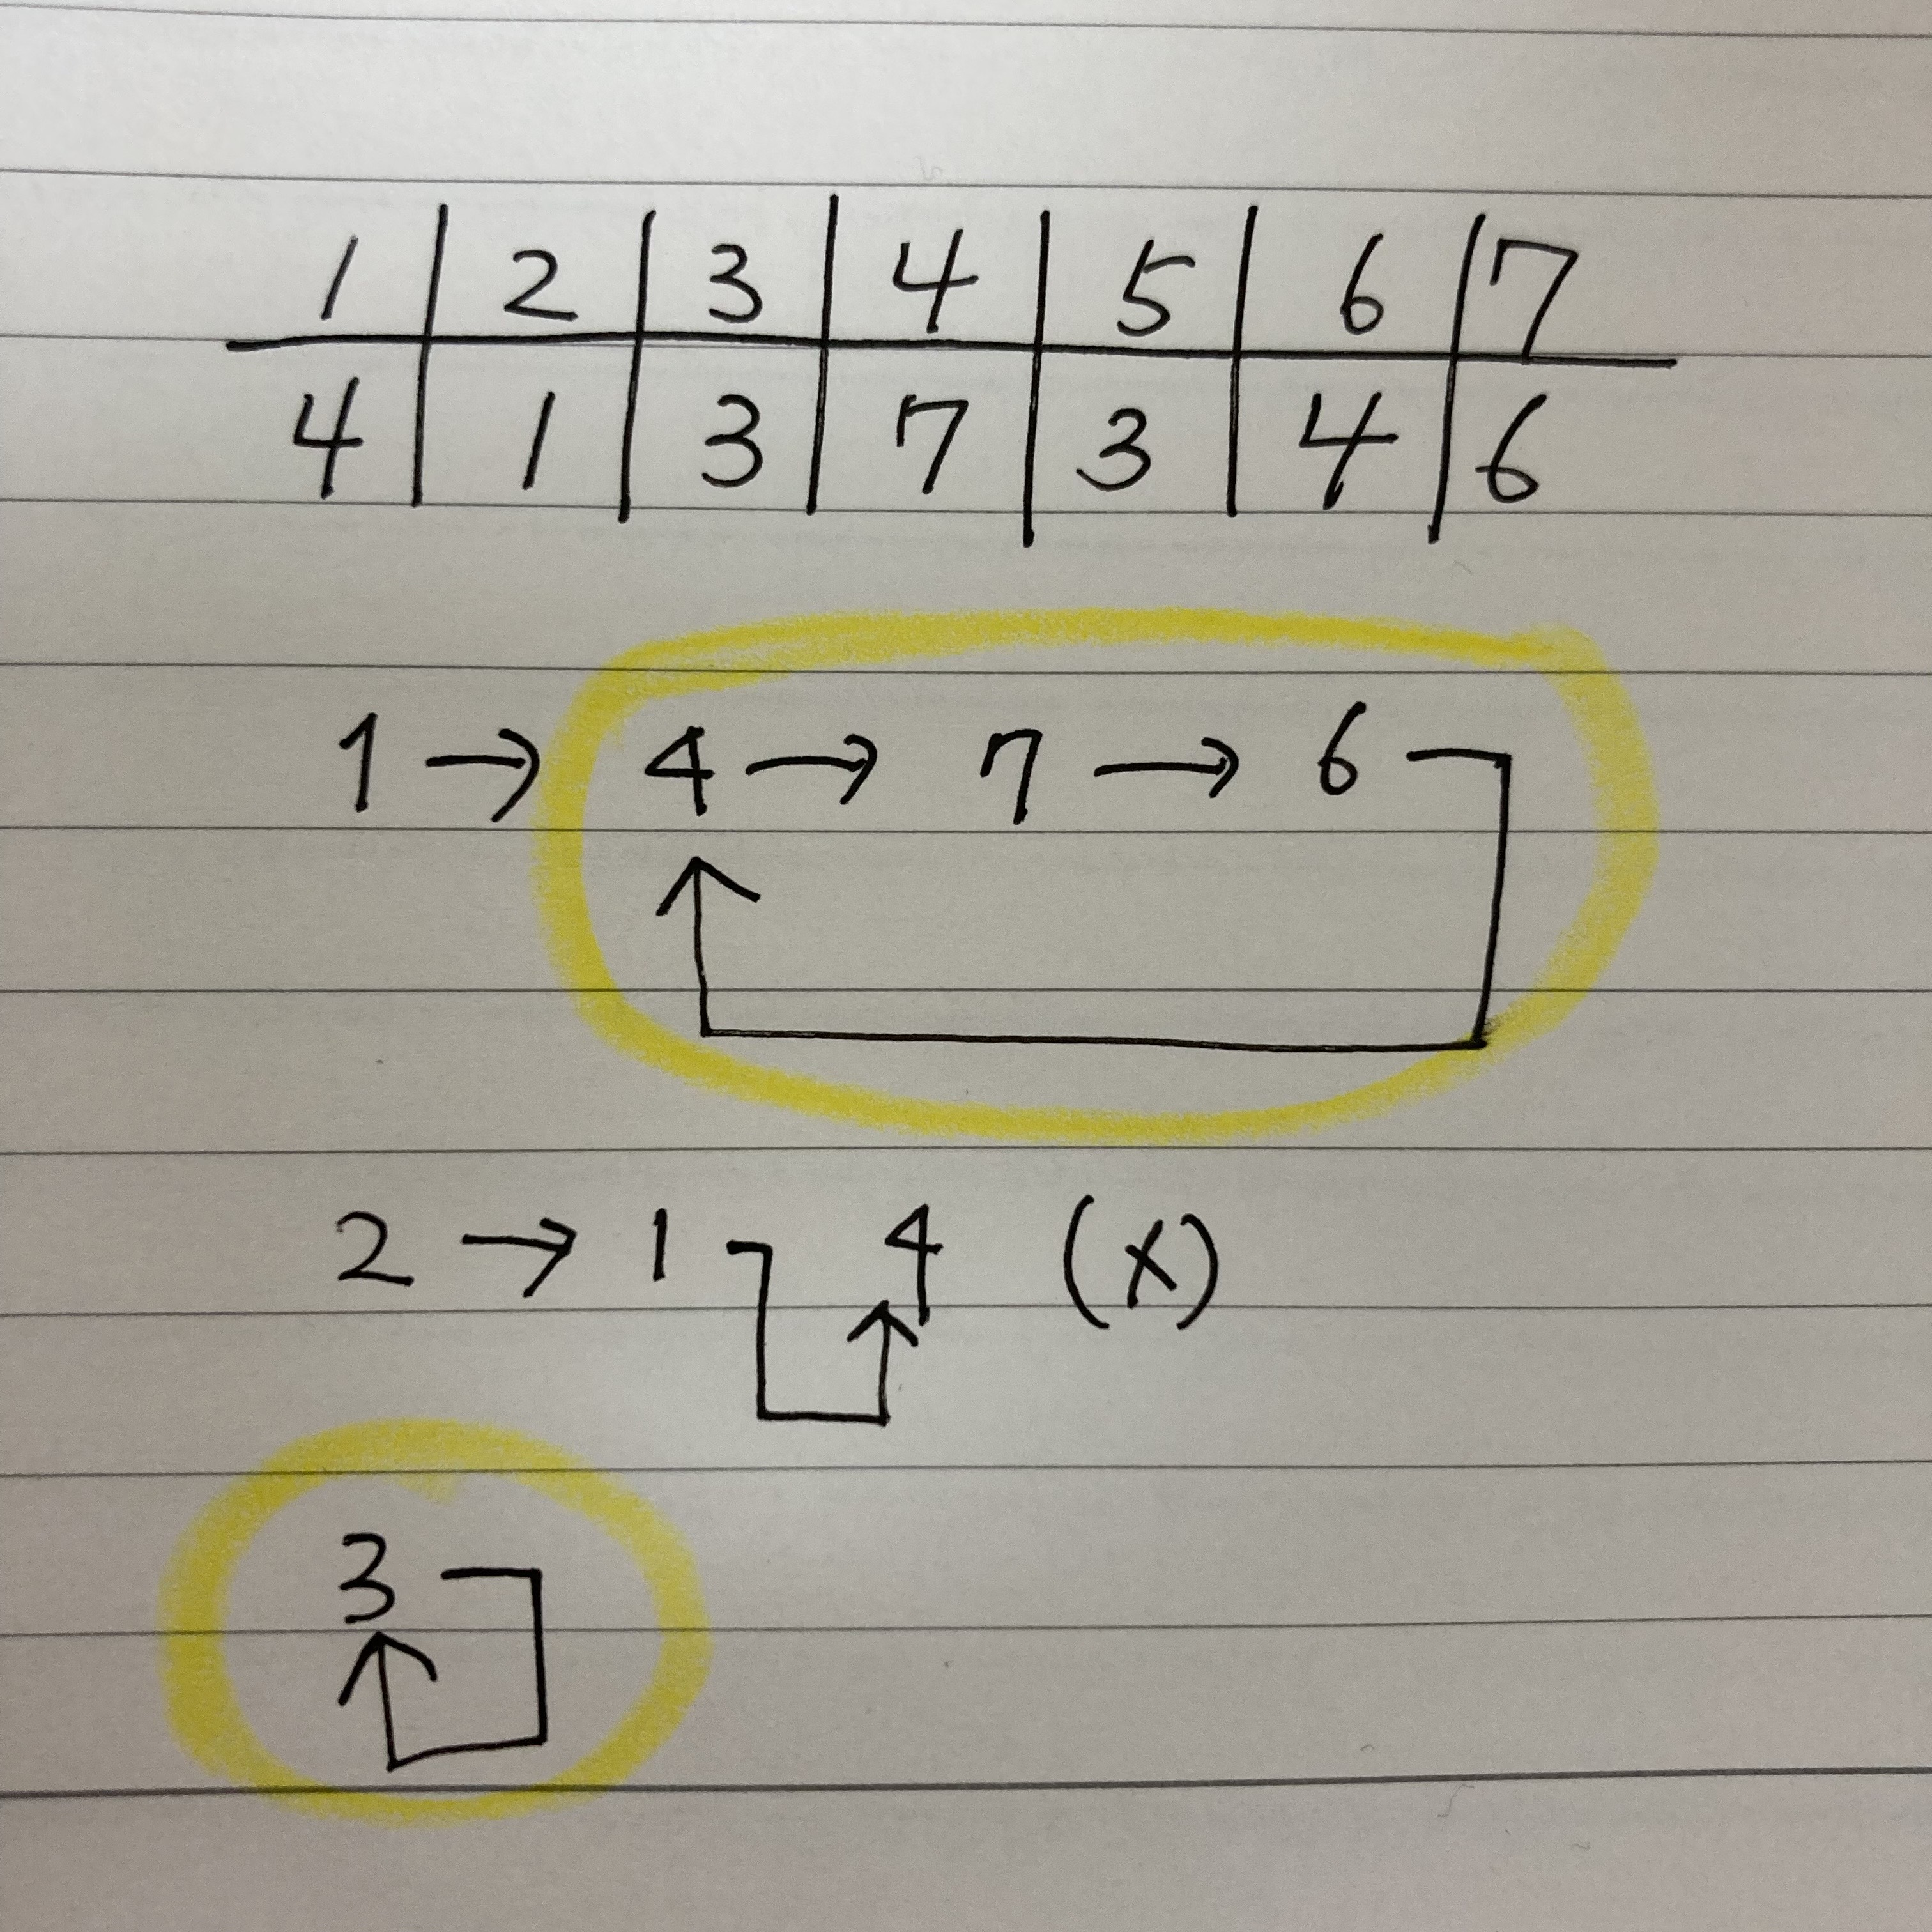 1 2 3 4 5 6 7
4 1 3 7 3 4 6
1 → 4 → 7 → 6
2 → 1 4 (x)
3